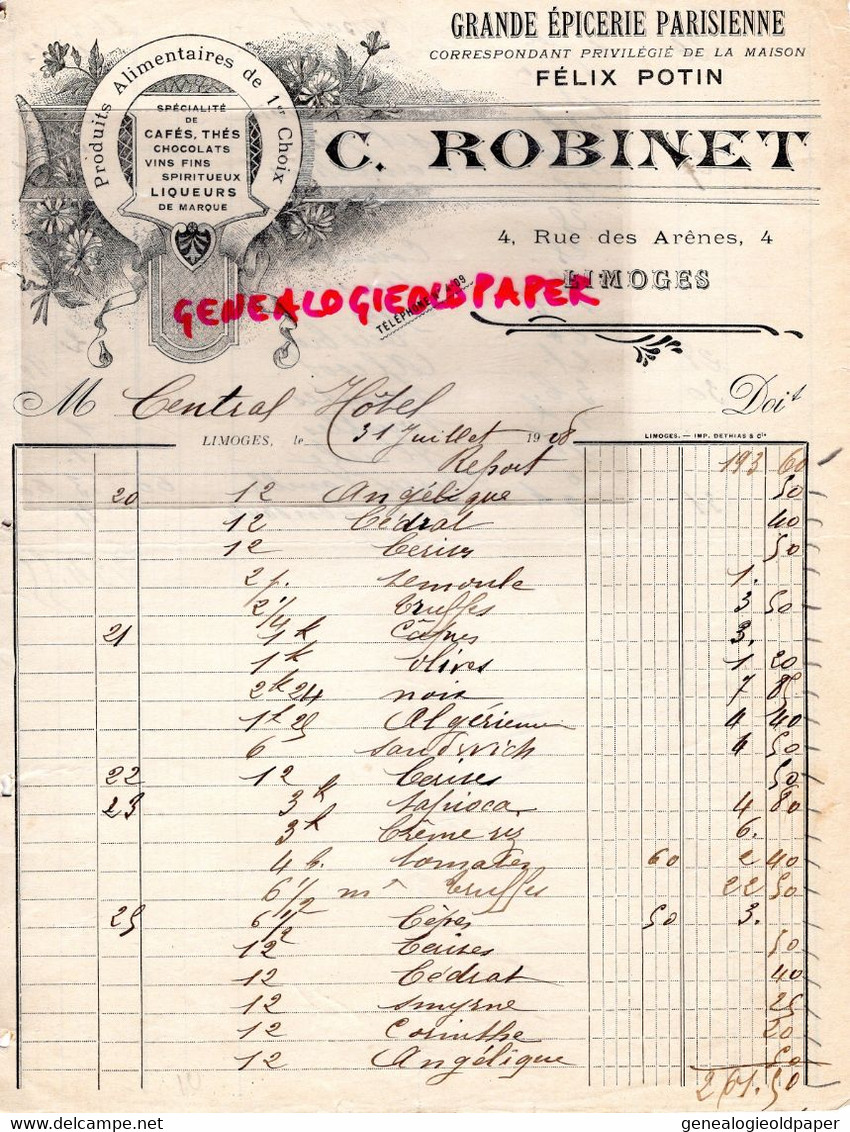 GRANDE ÉPICERIE PARISIENNE
CORRESPONDANT PRIVILÉGIÉ DE LA MAISON
FÉLIX POTIN
Produits Alimentaires de 1er Choix
SPÉCIALITÉ
DE
CAFÉS, THÉS
CHOCOLATS
VINS FINS
SPIRITUEUX
LIQUEURS
DE MARQUE
C. ROBINET
4, Rue des Arênes, 4
LIMOGES
GENEALOGIEOLDPAPER
TÉLÉPHONE 4.09
M Central Hôtel Doit
LIMOGES, le 31 Juillet 1908
LIMOGES. — IMP. DETHIAS & Cie
Report 193 60
20 12 Angélique 50
12 Cédrat 40
12 Cerises 50
2 p. semoule 1.
2 1/4 truffes 3 50
21 1 k Câpres 3.
1 k olives 1 20
2 k 24 noix 7 85
1 k 25 Algérienne 4 40
6 sandwich 4 50
22 12 Cerises 50
23 3 k tapioca 4 80
3 k Crême riz 6.
4 b. tomates 60 2 40
6 1/2 truffes 22 50
25 6 1/2 Cèpes 50 3.
12 Cerises 50
12 Cédrat 40
12 Smyrne 25
12 Corinthe 20
12 Angélique 50
261.50
genealogieoldpaper
genealogieoldpaper